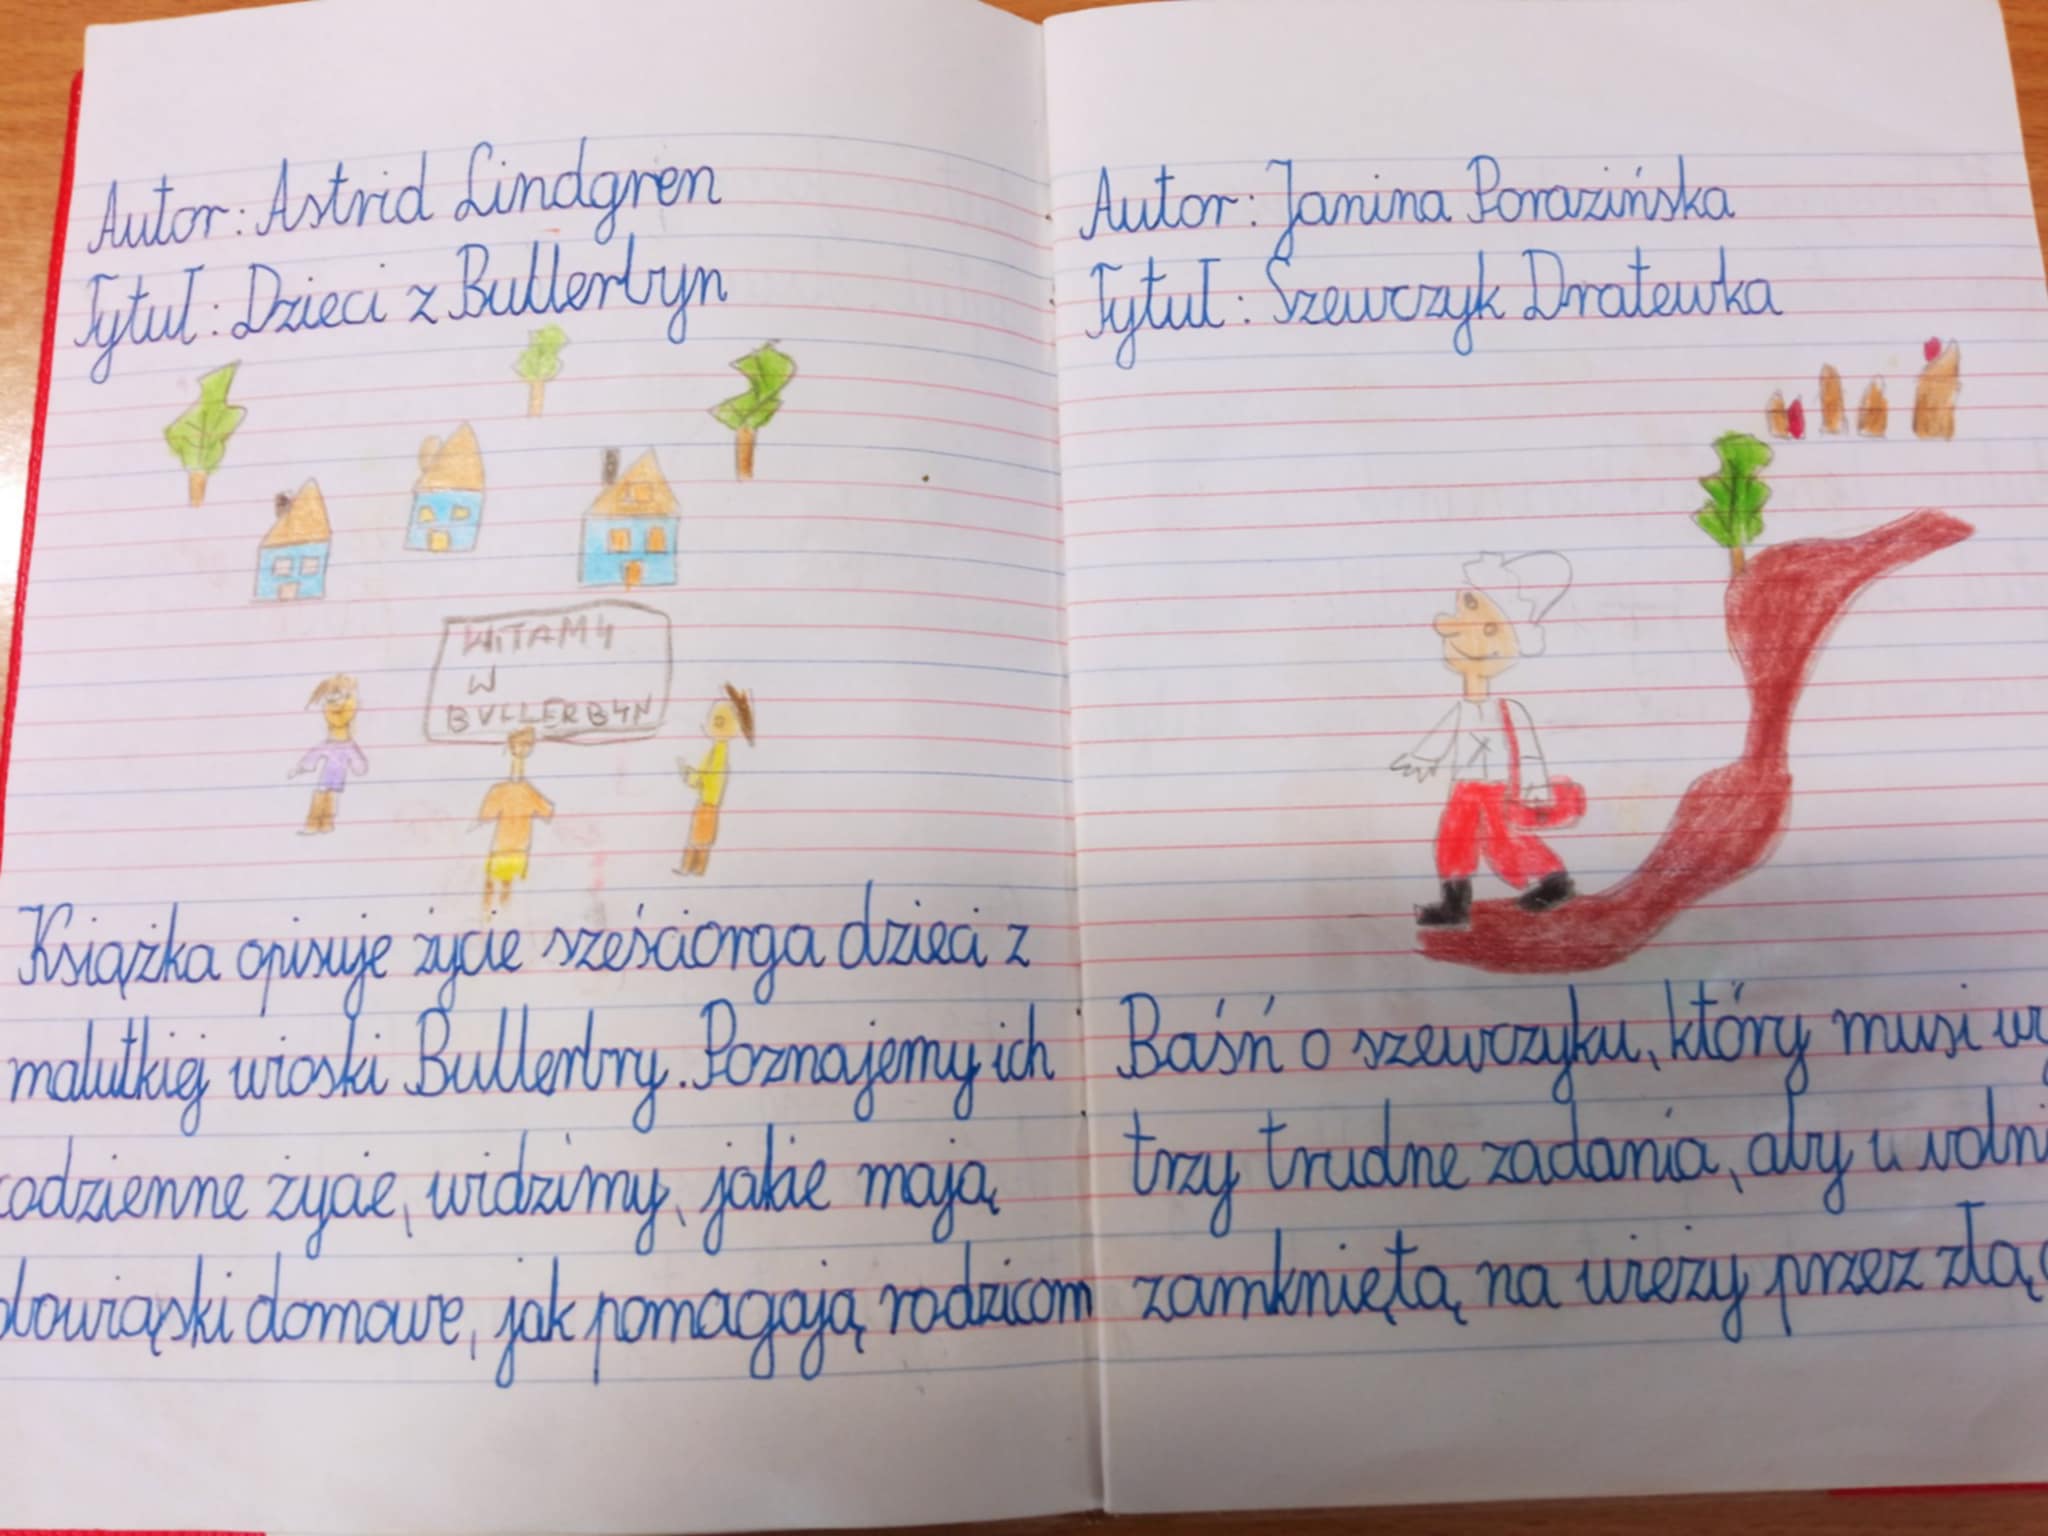 Autor: Astrid Lindgren
Tytuł: Dzieci z Bullerbyn
WITAMY
W
BULLERBYN
Książka opisuje życie sześciorga dzieci z
malutkiej wioski Bullerby. Poznajemy ich
codzienne życie, widzimy, jakie mają
obowiąski domowe, jak pomagają rodzicom
Autor: Janina Porazińska
Tytuł: Szewczyk Dratewka
Baśń o szewczyku, który musi wy
trzy trudne zadania, aby u wolni
zamkniętą na wieży przez złą